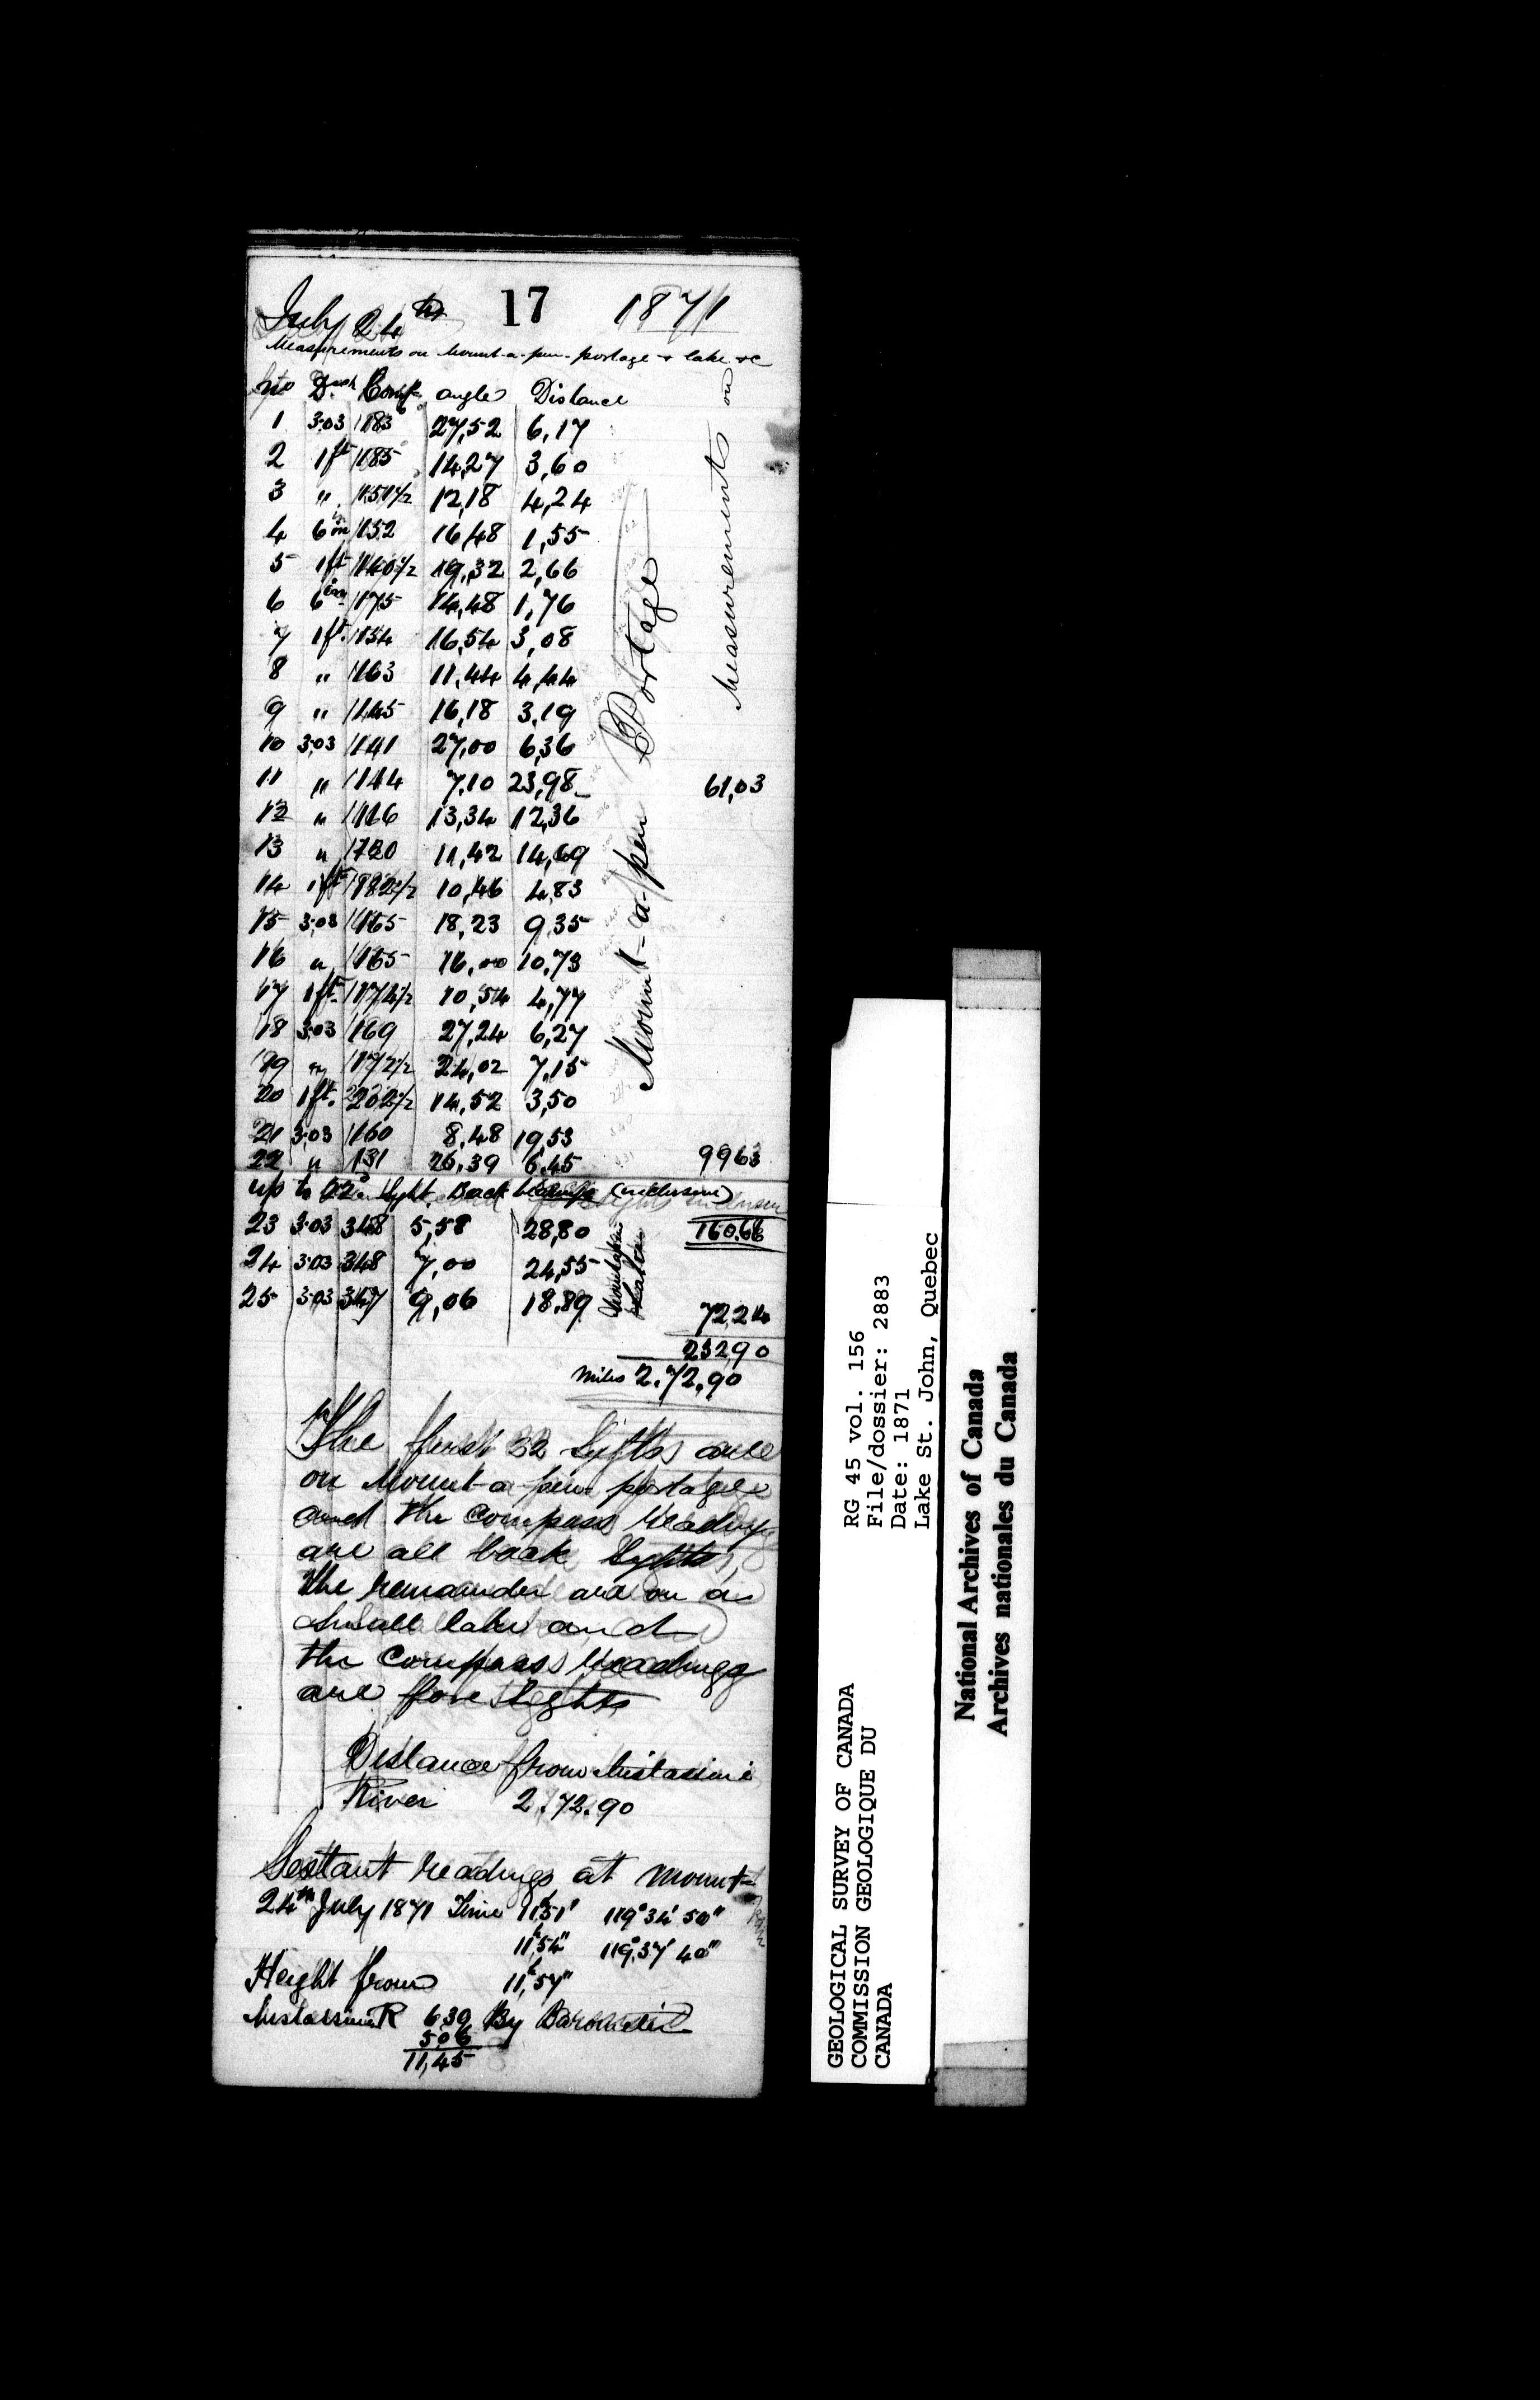 July 24th 17 1871
Measurements on Mount-a-pen- portage & lake &c
No Dash Comp angle Distance
1 3.03 183 27,52 6,17
2 1ft 185 14,27 3,60
3 " 151½ 12,18 4,24
4 6 in 152 16,48 1,55
5 1ft 140½ 19,32 2,66
6 6 in 175 14,48 1,76
7 1ft. 134 16,54 3,08
8 " 163 11,44 4,44
9 " 145 16,18 3,19
10 3.03 141 27,00 6,36
11 " 144 7,10 23,98 61,03
12 " 116 13,34 12,36
13 " 120 11,42 14,69
14 1ft 182½ 10,46 4,83
15 3.03 165 18,23 9,35
16 " 165 16,00 10,73
17 1ft 174½ 10,54 4,77
18 3.03 169 27,24 6,27
19 " 172½ 24,02 7,15
20 1ft. 202½ 14,52 3,50
21 3.03 160 8,48 19,53
22 " 131 26,39 6,45 9963
Measurements on
Mount-a-pen Portage
up to 22 Syht. Back bearings (inclusive)
23 3.03 348 5,58 28,80 160.66
24 3.03 348 7,00 24,55
25 3.03 347 9,06 18,89 72,24
232,90
Miles 2.72,90
The first 22 Syhts are
on Mount-a-pen portage
and the compass readings
are all back Syhts,
the remainder are on a
small lake and
the compass readings
are fore Syhts
Distance from Mistassini
River 2.72.90
Sextant readings at Mount-
24th July 1871 Time 11h51' 119° 34' 50"
11h,54" 119°,37' 40"
Height from 11h,57"
Mistassini R 639 By Barometer
506
11,45
GEOLOGICAL SURVEY OF CANADA
COMMISSION GEOLOGIQUE DU
CANADA
RG 45 vol. 156
File/dossier: 2883
Date: 1871
Lake St. John, Quebec
National Archives of Canada
Archives nationales du Canada